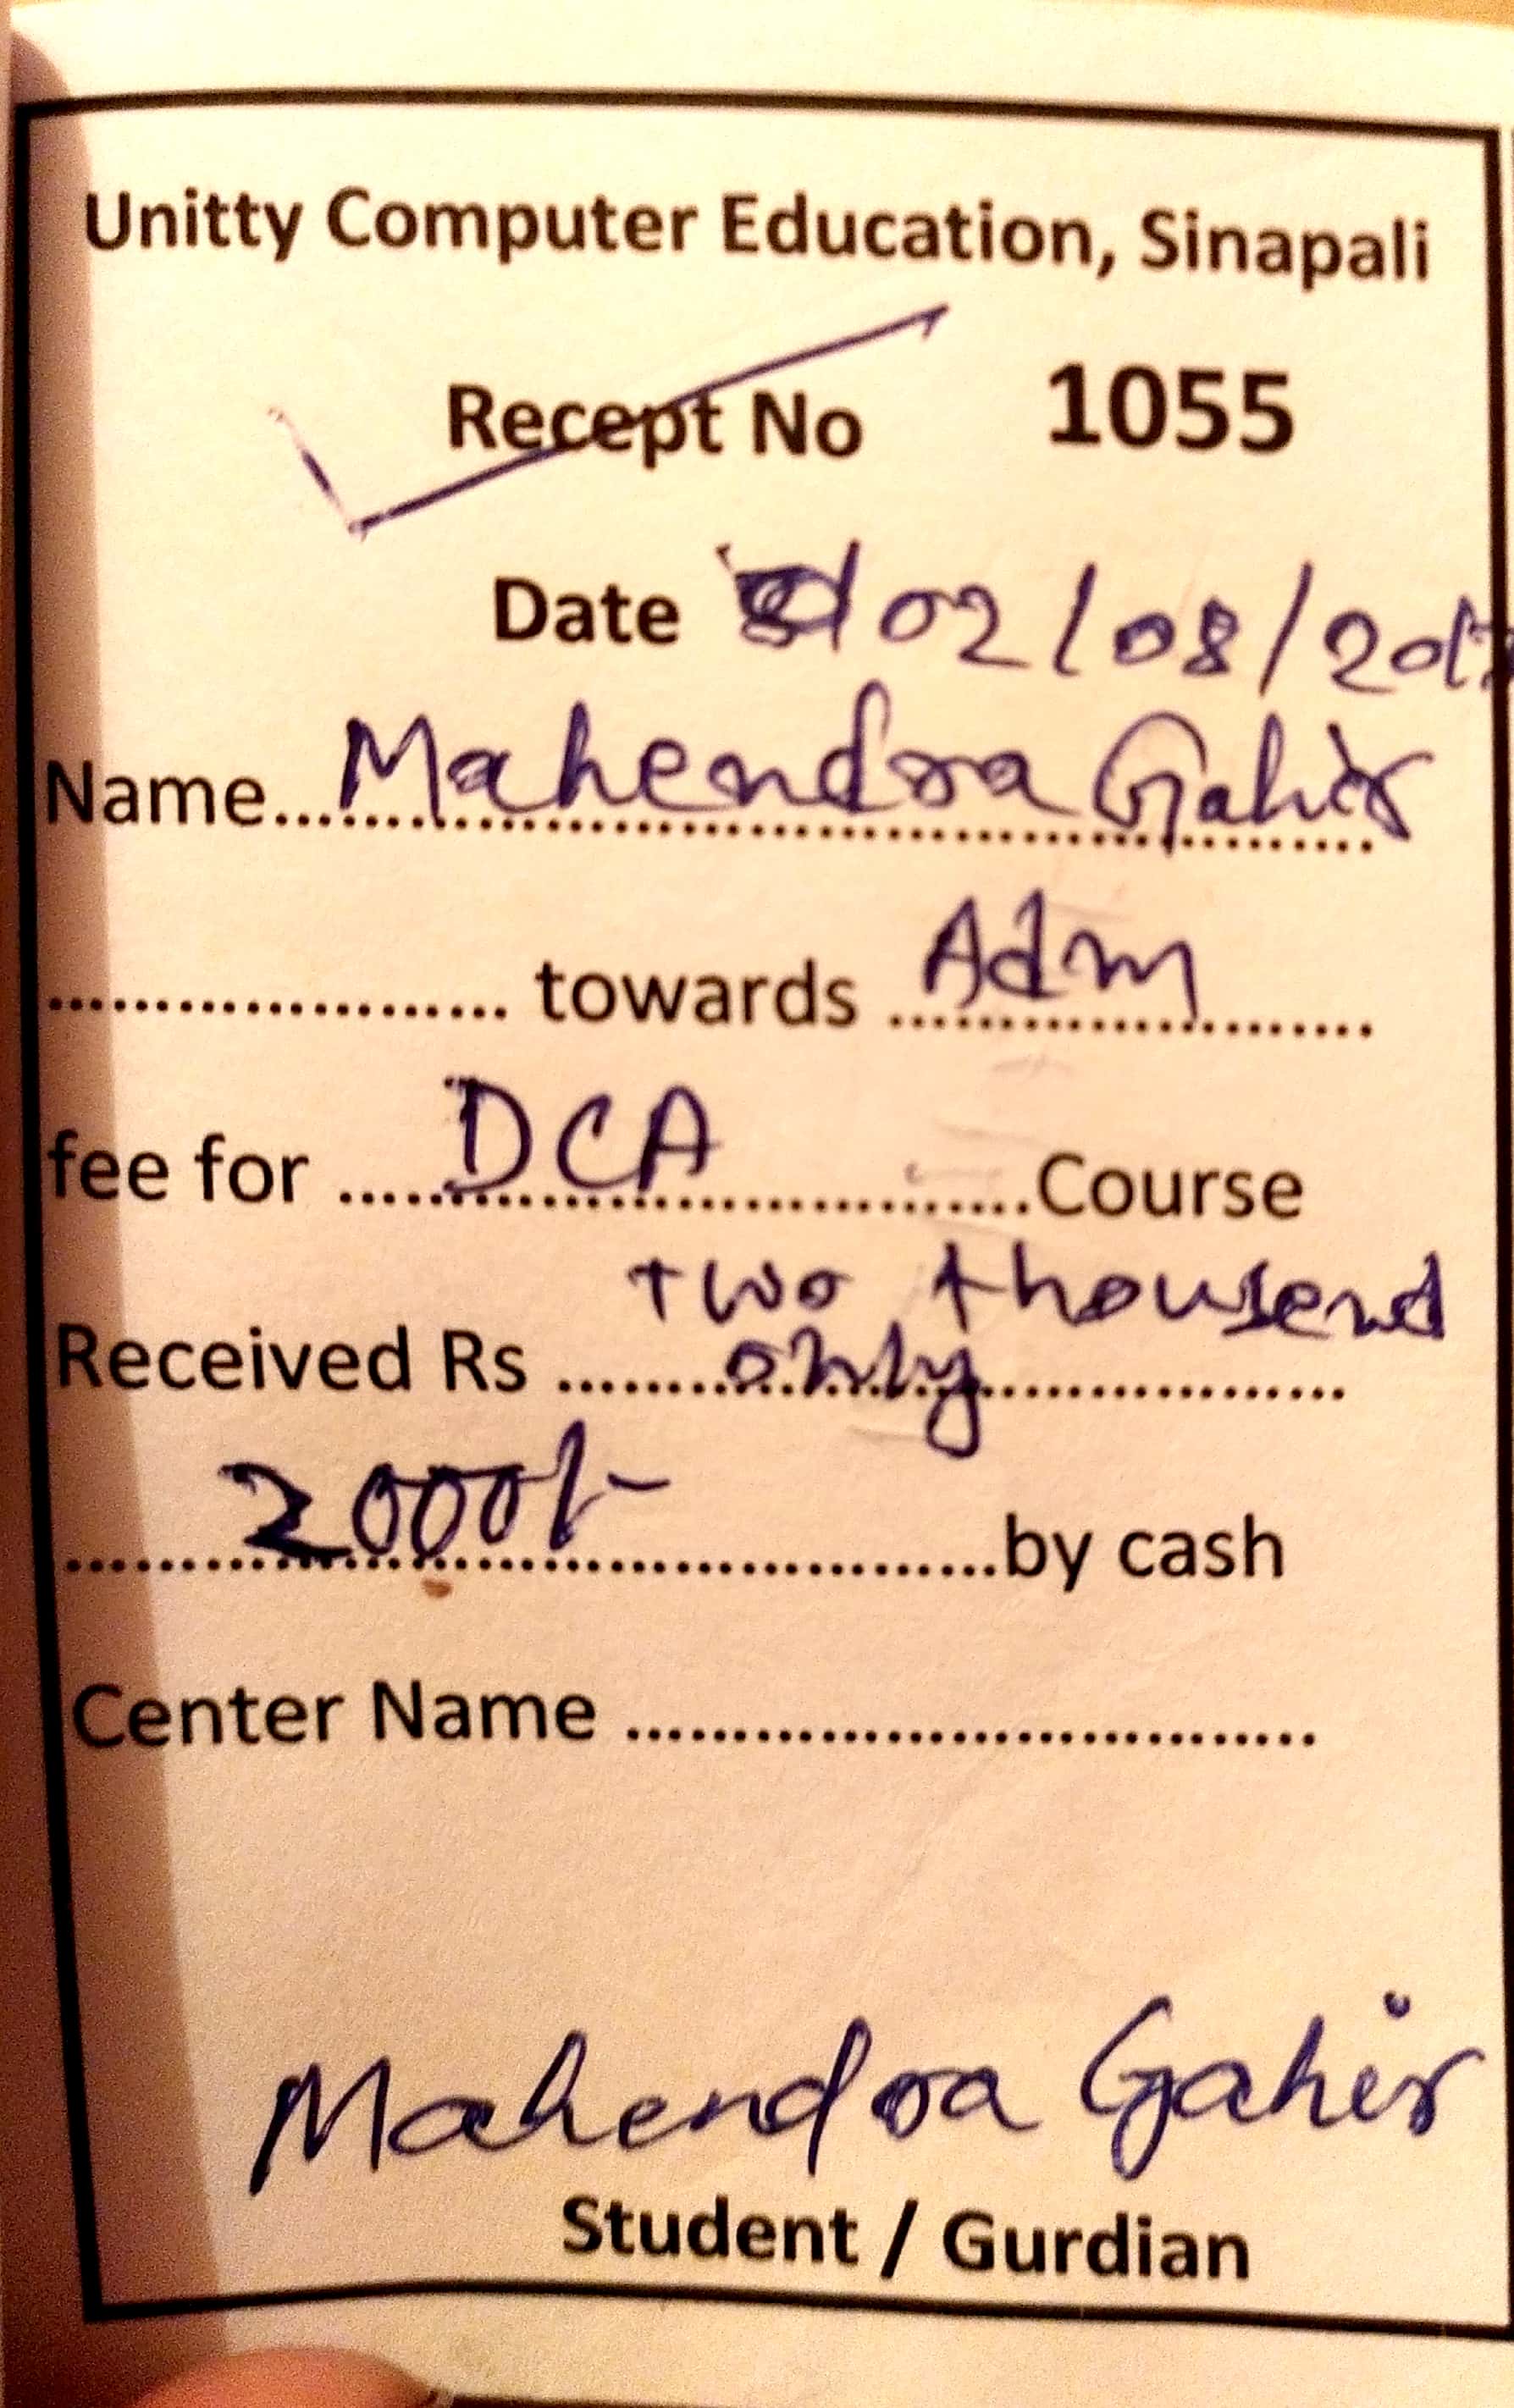 Unitty Computer Education, Sinapali
Recept No 1055
Date 02/08/
Name...Mahendra Gahir
.......... towards ...Adm...
fee for ...DCA...Course
two thousend
Received Rs ...only...
2000/- ...by cash
Center Name ..........
Mahendra Gahir
Student / Gurdian